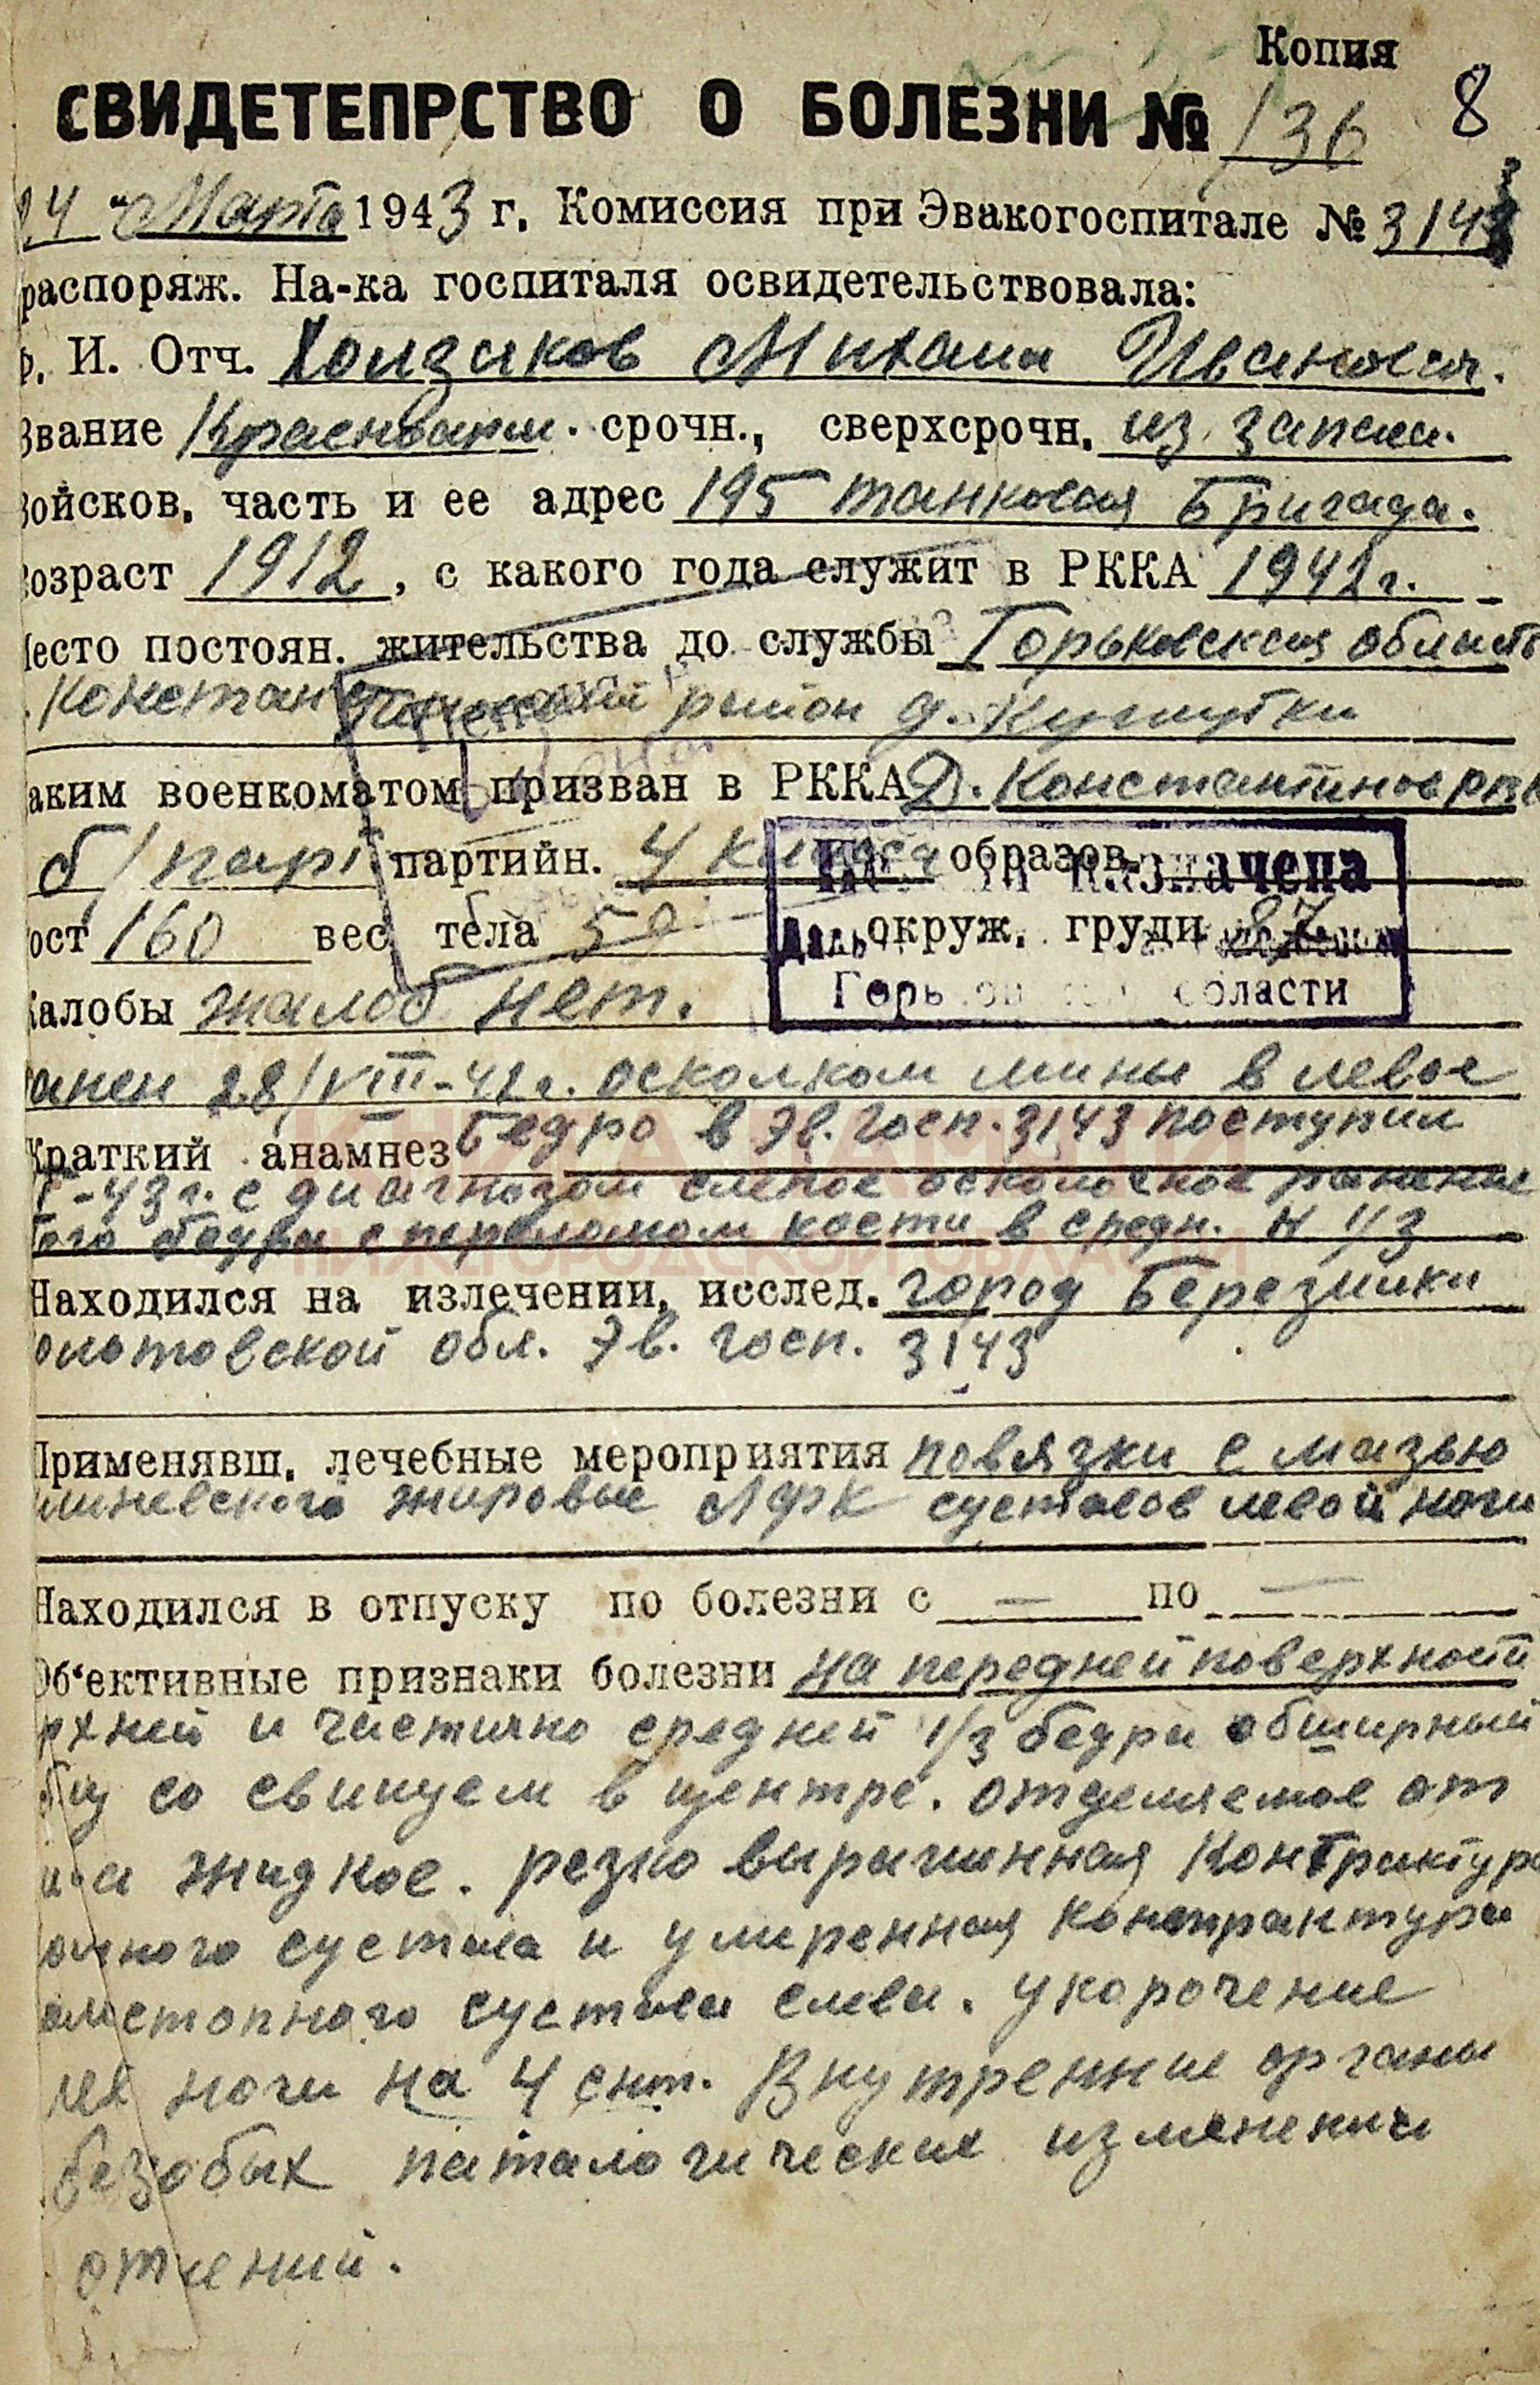 Копия
СВИДЕТЕПРСТВО О БОЛЕЗНИ № 136 8
24 " Марта 1943 г. Комиссия при Эвакогоспитале № 3143
распоряж. На-ка госпиталя освидетельствовала:
Ф. И. Отч. Михаил Иванович.
Звание Красноарм. срочн., сверхсрочн. из запаса.
Войсков. часть и ее адрес 195 танковая Бригада.
возраст 1912, с какого года служит в РККА 1942 г.
Место постоян. жительства до службы Горьковская область
район д.
Каким военкоматом призван в РККА Д. Константинов
б/парт партийн. 4 класса образов.
рост 160 вес тела 50 окруж. груди 87
назначена
Горь области
Жалобы жалоб нет.
ранен 28/VIII-42 г. осколком мины в левое
Краткий анамнез бедро в Эв. госп. 3143 поступил
-43 г. с диагнозом слепое осколочное ранение
бедра с переломом кости в средн. н 1/3
КНИГА ПАМЯТИ
НИЖЕГОРОДСКОЙ ОБЛАСТИ
Находился на излечении, исслед. город Березники
олотовской обл. Эв. госп. 3143
Применявш. лечебные мероприятия повязки с мазью
жировые ЛФК суставов левой ноги
Находился в отпуску по болезни с — по —
Об‘ективные признаки болезни на передней поверхности
рхней и частично средней 1/3 бедра обширный
со свищем в центре. отделяемое от
жидкое. резко выраженная контрактура
сустава и умеренная контрактура
остопного сустава слева. укорочение
ноги на 4 снт. Внутренние органы
патологических изменений